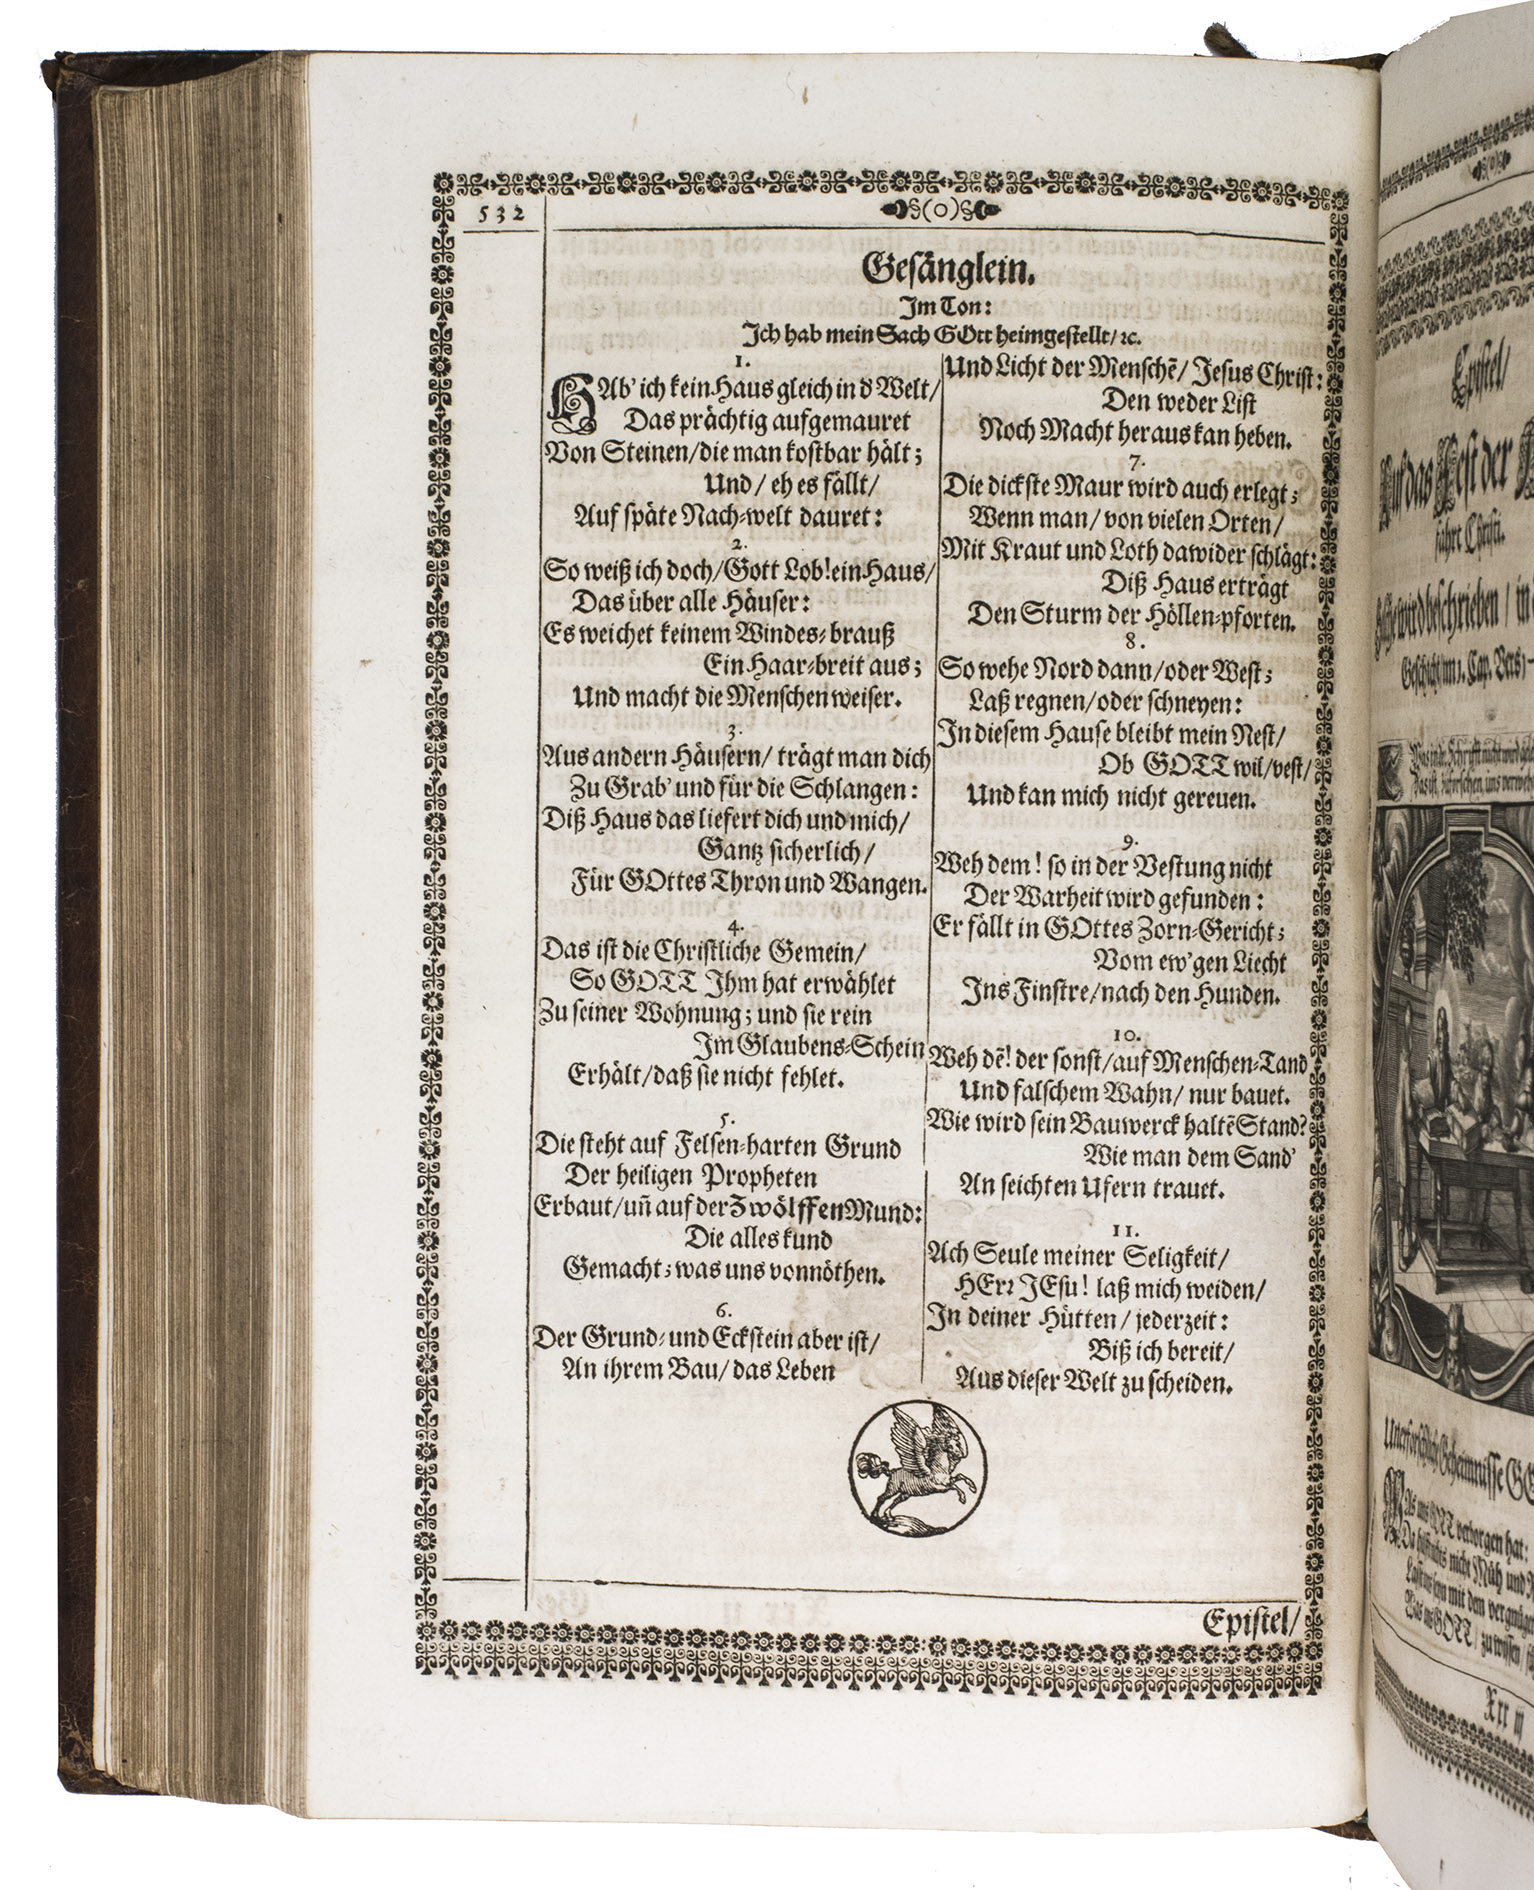 532
§(o)§
Gesänglein.
Im Ton:
Ich hab mein Sach GOtt heimgestellt/ ꝛc.
1.
HAb' ich kein Haus gleich in d Welt/
Das prächtig aufgemauret
Von Steinen/die man kostbar hält;
Und/ eh es fällt/
Auf späte Nach-welt dauret:
2.
So weiß ich doch/Gott Lob! ein Haus/
Das über alle Häuser:
Es weichet keinem Windes-brauß
Ein Haar-breit aus;
Und macht die Menschen weiser.
3.
Aus andern Häusern/ trägt man dich
Zu Grab' und für die Schlangen:
Diß Haus das liefert dich und mich/
Gantz sicherlich/
Für GOttes Thron und Wangen.
4.
Das ist die Christliche Gemein/
So GOTT Ihm hat erwählet
Zu seiner Wohnung; und sie rein
Im Glaubens-Schein
Erhält/daß sie nicht fehlet.
5.
Die steht auf Felsen-harten Grund
Der heiligen Propheten
Erbaut/uñ auf der Zwölffen Mund:
Die alles kund
Gemacht; was uns vonnöthen.
6.
Der Grund- und Eckstein aber ist/
An ihrem Bau/ das Leben
Und Licht der Menschẽ/ Jesus Christ:
Den weder List
Noch Macht heraus kan heben.
7.
Die dickste Maur wird auch erlegt;
Wenn man/ von vielen Orten/
Mit Kraut und Loth dawider schlägt:
Diß Haus erträgt
Den Sturm der Höllen-pforten.
8.
So wehe Nord dann/oder West;
Laß regnen/oder schneyen:
In diesem Hause bleibt mein Nest/
Ob GOTT wil/vest/
Und kan mich nicht gereuen.
9.
Weh dem! so in der Vestung nicht
Der Warheit wird gefunden:
Er fällt in GOttes Zorn-Gericht;
Vom ew'gen Liecht
Ins Finstre/nach den Hunden.
10.
Weh dẽ! der sonst/auf Menschen-Tand
Und falschem Wahn/ nur bauet.
Wie wird sein Bauwerck haltẽ Stand?
Wie man dem Sand'
An seichten Ufern trauet.
11.
Ach Seule meiner Seligkeit/
HErꝛ JEsu! laß mich weiden/
In deiner Hütten/ jederzeit:
Biß ich bereit/
Aus dieser Welt zu scheiden.
Epistel/
Epistel/
Auf das Fest der
fahrt Christi.
wird beschrieben/ in
Geschicht im 1. Cap. Vers 1
Unerforschliche Geheimnisse
Was uns GOTT verborgen hat:
Da hilfft nicht Müh und
Xxx iij